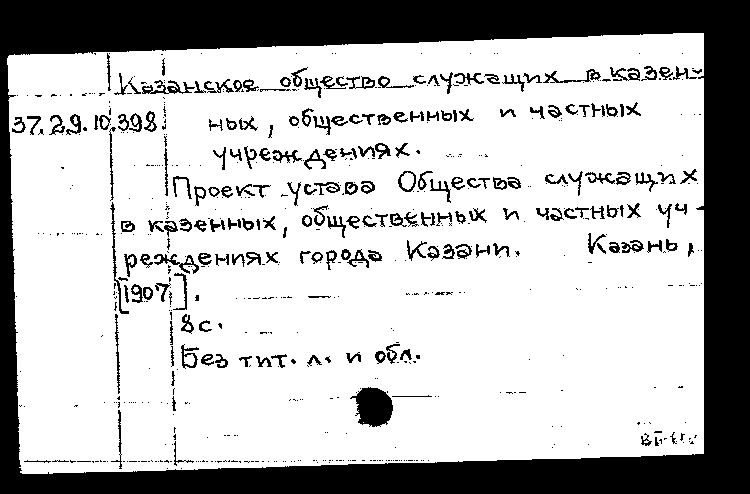 Казанское общество служащих в казен-
37.29.10.398. ных, общественных и частных
учреждениях.
Проект устава Общества служащих
в казенных, общественных и частных уч-
реждениях города Казани. Казань,
[1907].
8с.
Без тит. л. и обл.